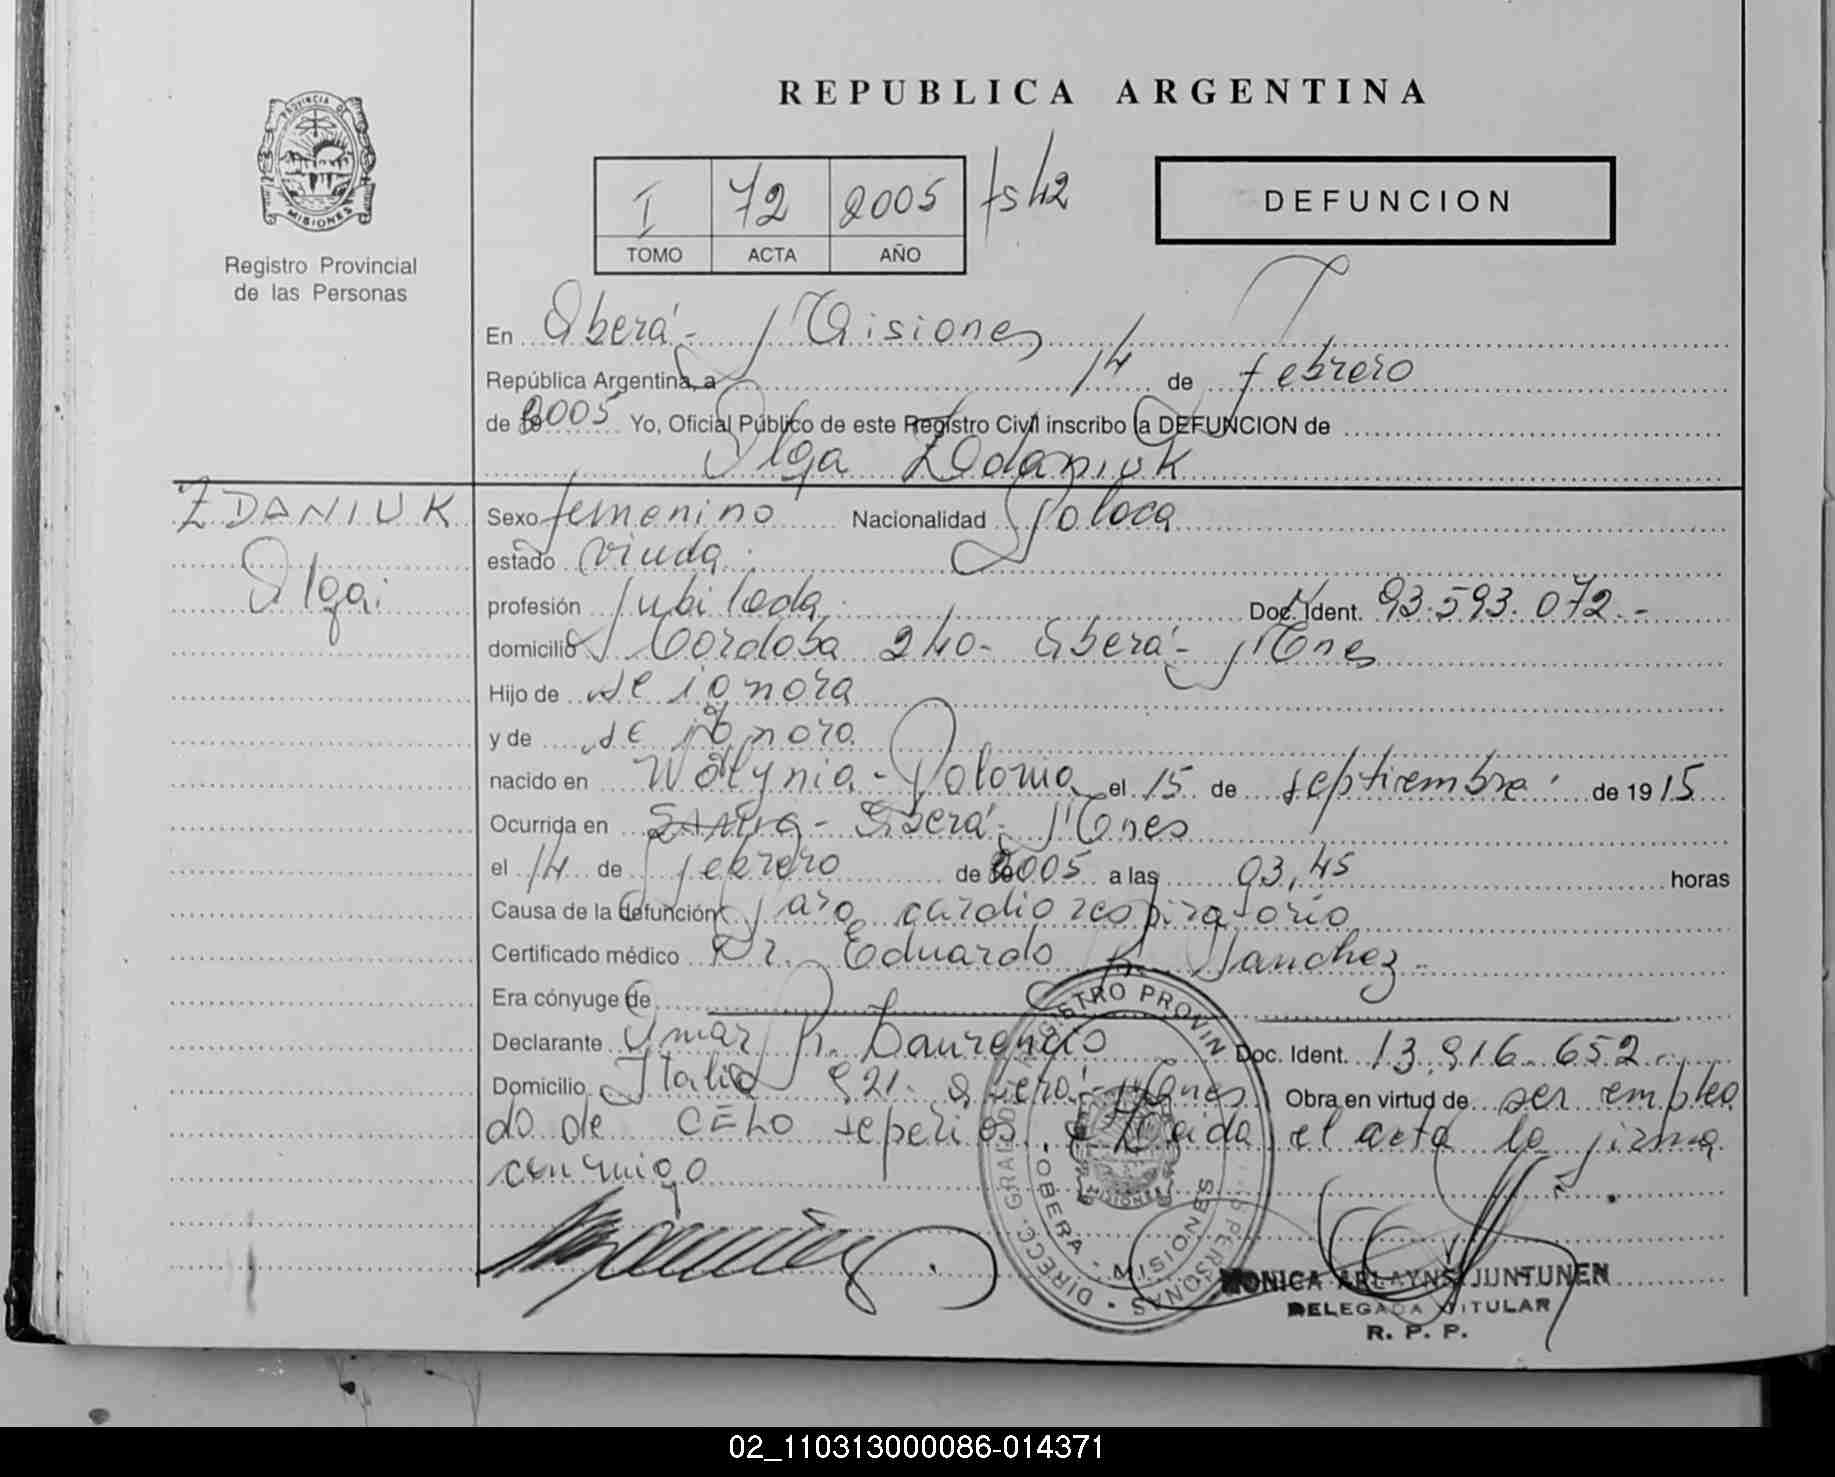 REPUBLICA ARGENTINA
PROVINCIA DE
MISIONES
Registro Provincial
de las Personas
I 72 2005 fs 42
TOMO ACTA AÑO
DEFUNCION
En Oberá - Misiones
República Argentina, a 14 de febrero
de 2005 Yo, Oficial Público de este Registro Civil inscribo la DEFUNCION de
Olga Zdaniuk
ZDANIUK
Olga
Sexo femenino Nacionalidad Polaca
estado viuda
profesión Jubilada Doc. Ident. 93.593.072.-
domicilio Cordoba 240- Oberá - Mnes
Hijo de se ignora
y de se ignora
nacido en Wolynia - Polonia el 15 de septiembre de 1915
Ocurrida en - Oberá - Mnes
el 14 de febrero de 2005 a las 03,45 horas
Causa de la defunción paro cardiorespiratorio
Certificado médico Dr. Eduardo R. Sanchez -
Era cónyuge de
Declarante Omar R. Doc. Ident. 13.916.652
Domicilio Italia 921 Oberá - Mnes Obra en virtud de ser emplea
do de CELO sepelios Leida el acta la firma
conmigo
DIRECC. GRAL. DEL REGISTRO PROVIN PERSONAS
OBERA - MISIONES
MISIONES
MONICA ARLAYNS JUNTUNEN
DELEGADA TITULAR
R. P. P.
02_110313000086-014371